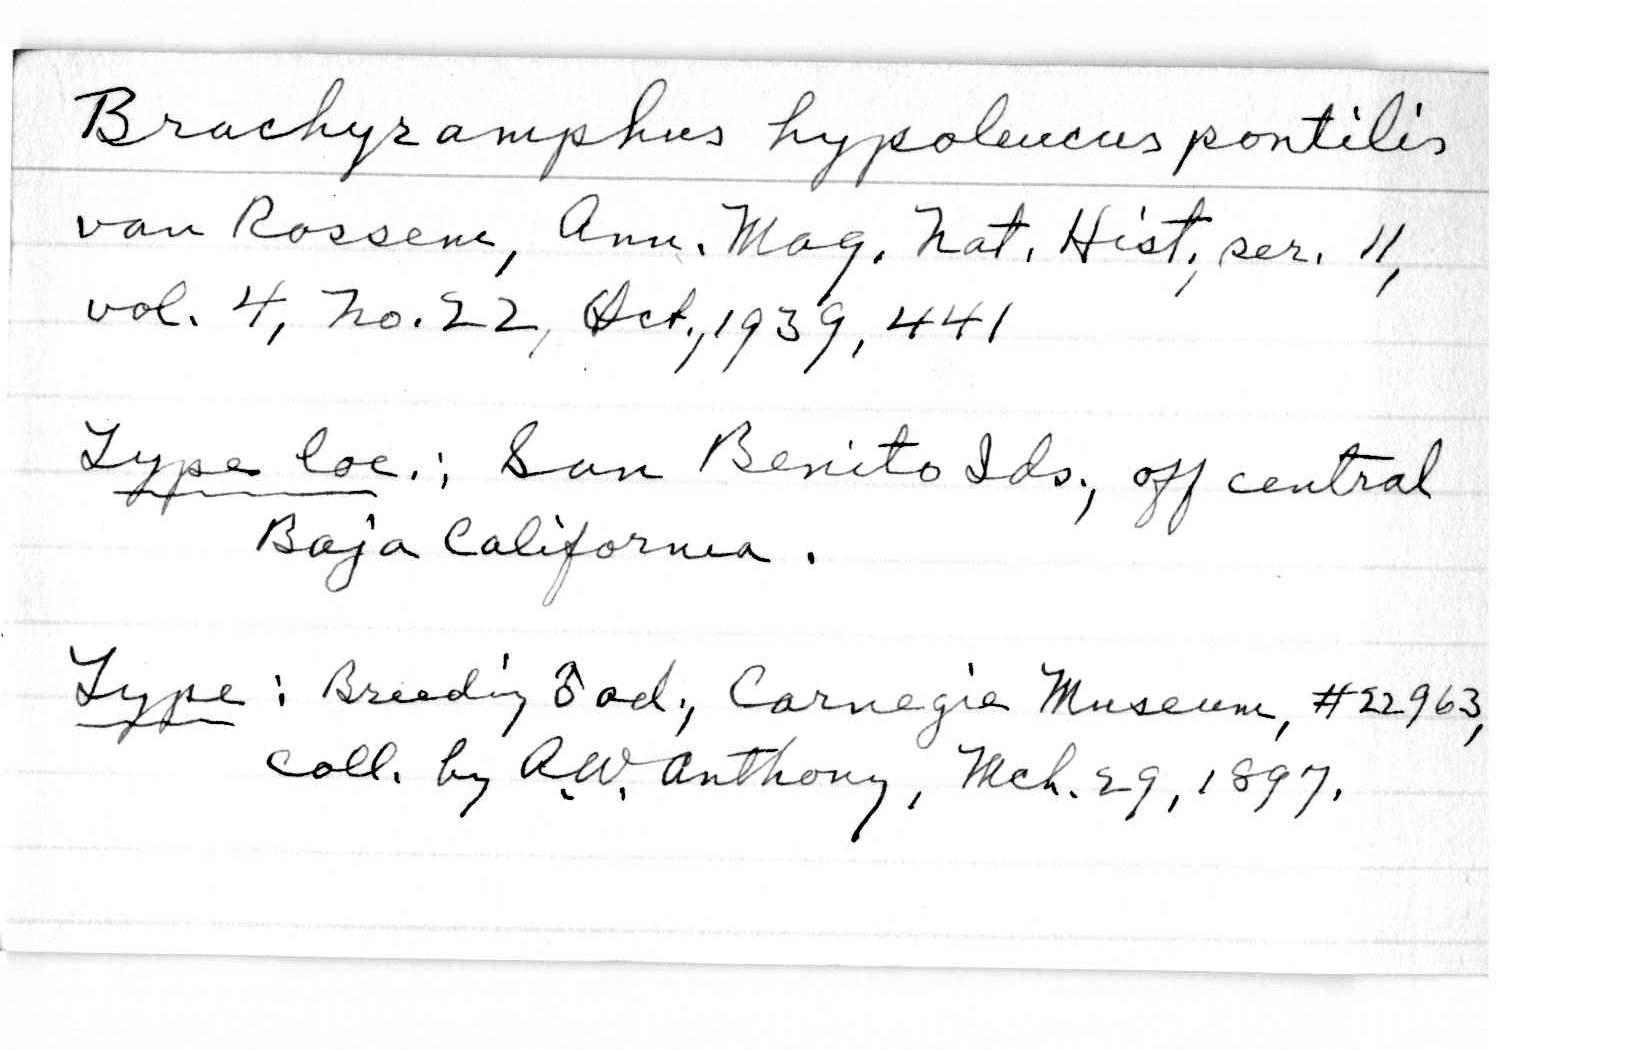 Brachyramphus hypoleucus pontilis
van Rossem, Ann. Mag. Nat. Hist., ser. 11,
vol. 4, No. 22, Oct., 1939, 441
Type loc.: San Benito Ids., off central
Baja California.
Type: Breeding ♂ ad., Carnegie Museum, #22963,
coll. by A.W. Anthony, Mch. 29, 1897.